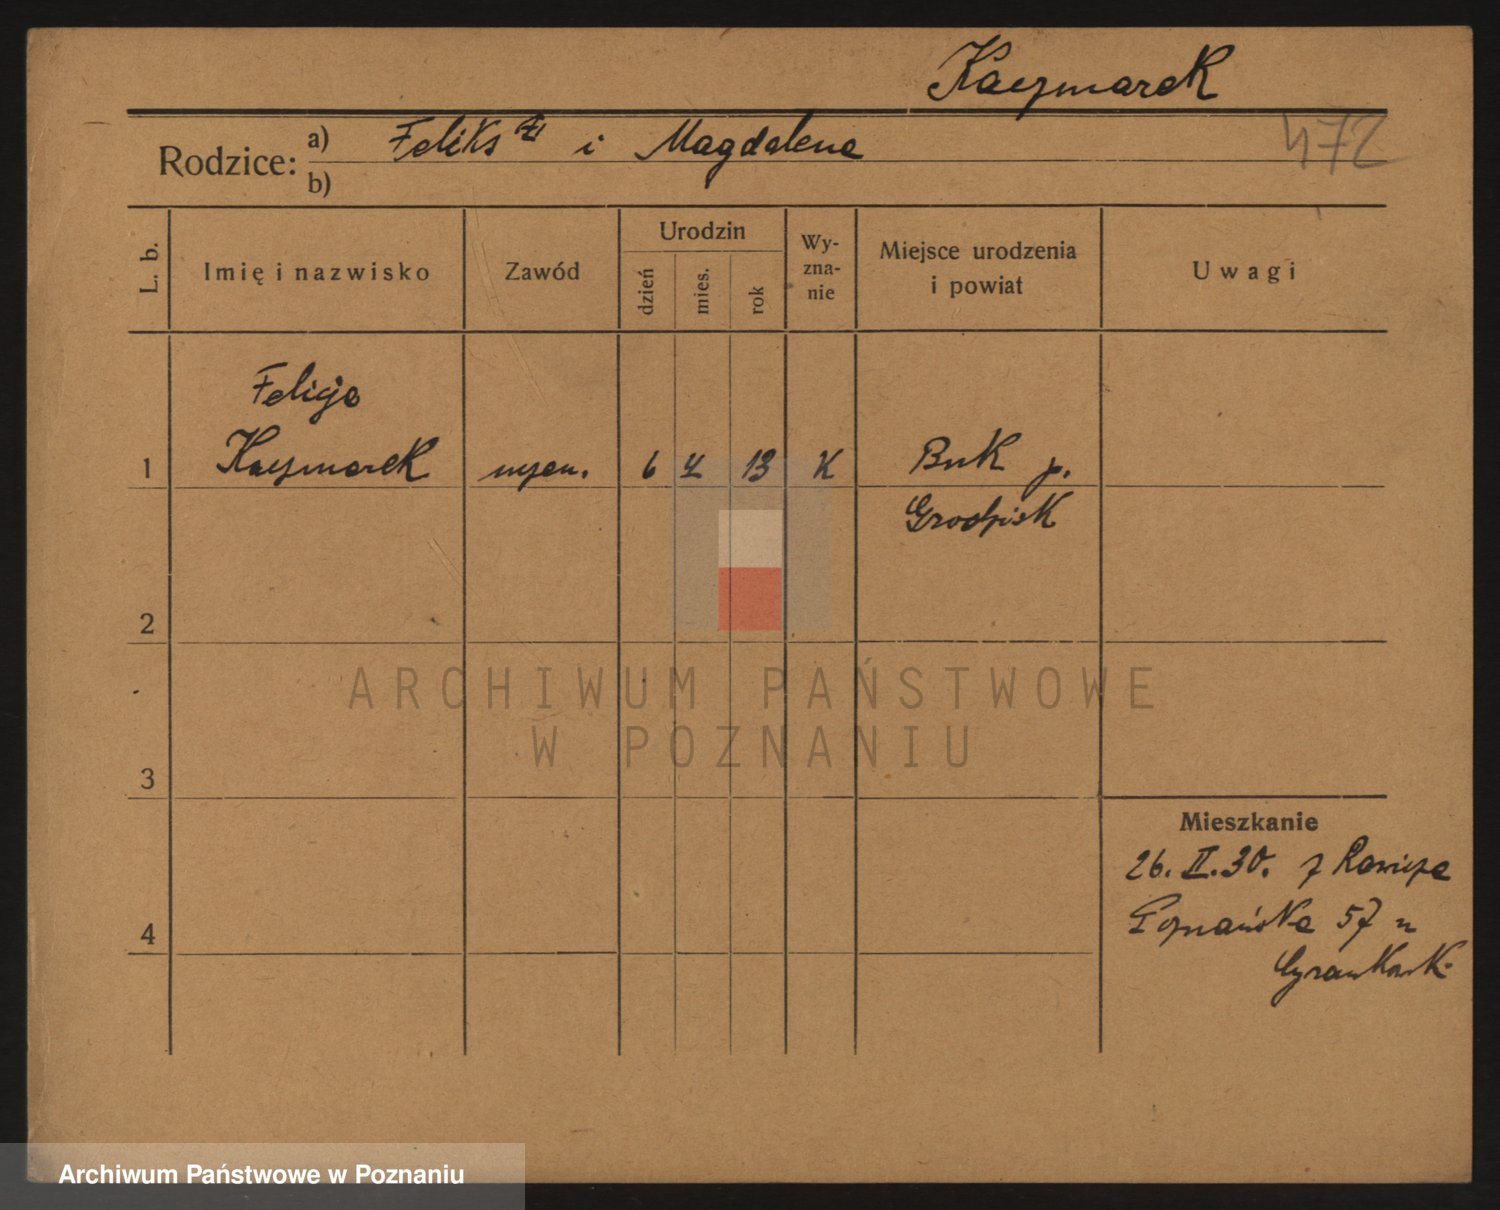 Kaczmarek
472
Rodzice: a) Feliks i Magdalena
b)
L. b.
Imię i nazwisko
Zawód
Urodzin
dzień
mies.
rok
Wy-
zna-
nie
Miejsce urodzenia
i powiat
Uwagi
Felicja
1 Kaczmarek uczen. 6 4 13 K Buk p.
Grodzisk
2
3
4
Mieszkanie
26. II. 30. z Rawicza
Poznańska 57 u
ARCHIWUM PAŃSTWOWE
W POZNANIU
Archiwum Państwowe w Poznaniu